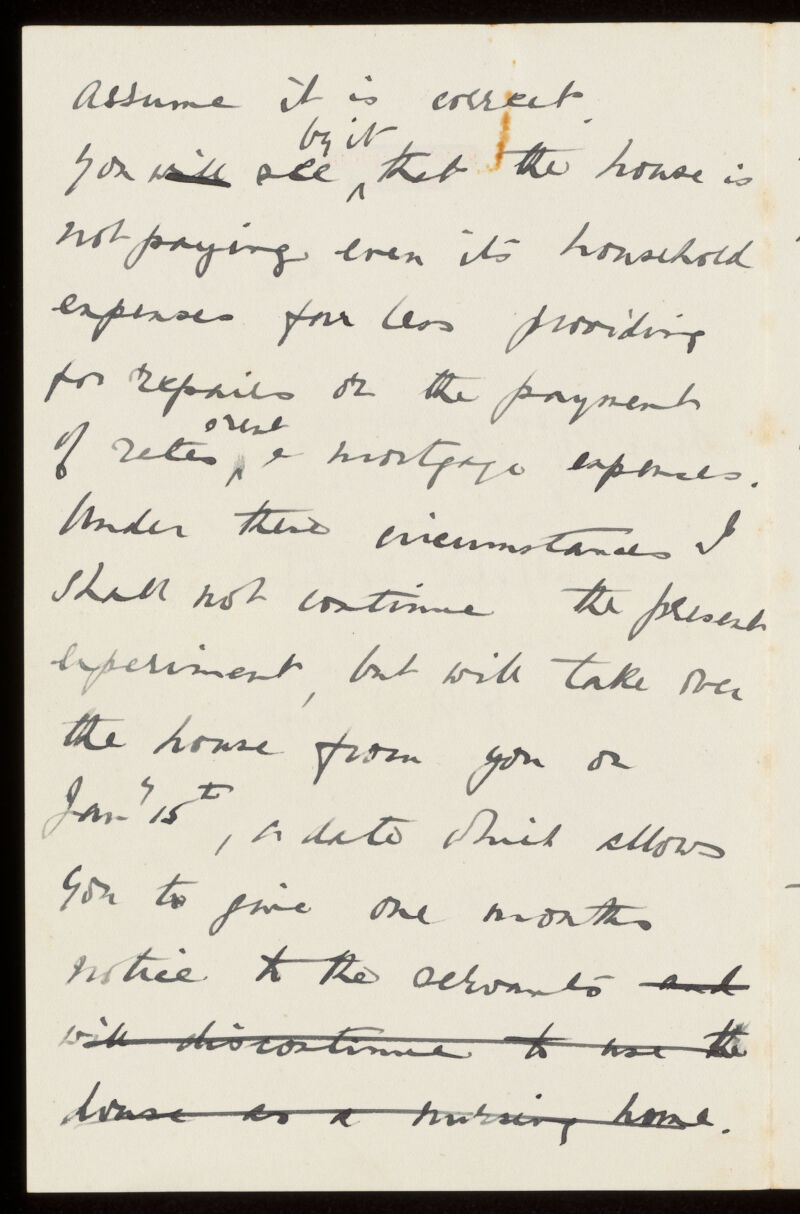 assume it is correct.
by it
You will see ^ that the house is
not paying even its household
expenses far less providing
for repairs or the payment
or rent
of rates ^ & mortgage expenses.
Under these circumstances I
shall not continue the present
experiment, but will take over
the house from you on
Jany 15th, a date which allows
you to give one months
notice to the servants and
will discontinue to use the
house as a nursing home.